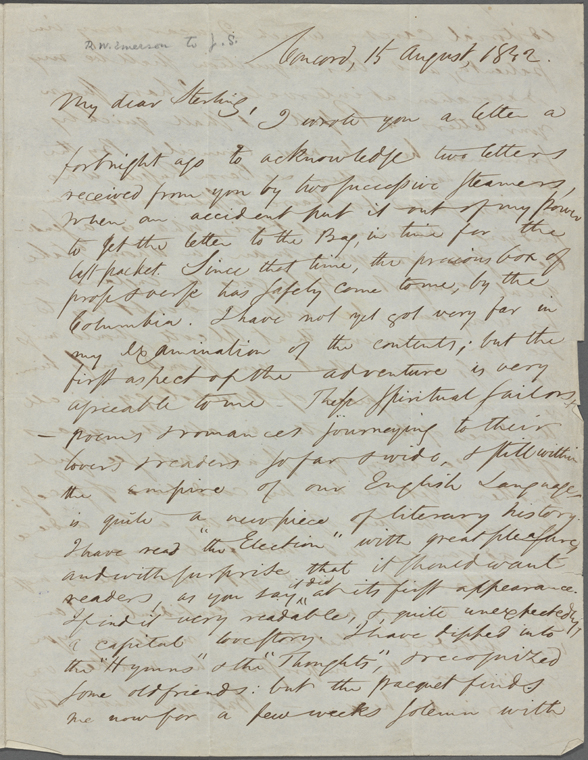 R. W. Emerson to J. S.
Concord, 15 August 1842.
My dear Sterling,
I wrote you a letter a
fortnight ago to acknowledge two letters
received from you by two successive Steamers,
when an accident put it out of my power
to get the letter to the Bag, in time for the
last packet. Since that time, the precious box of
prose & verse has safely come to me, by the
Columbia. I have not yet got very far in
my examination of the contents; but the
first aspect of the adventure is very
agreeable to me — These Spiritual Sailors,
— poems & romances journeying to their
lovers & readers so far & wide, & still within
the empire of our English Language
is quite a new piece of literary history.
I have read "the Election" with great pleasure
and with surprise that it should want
readers, as you say it did at its first appearance.
I find it very readable, &, quite unexpectedly,
a capital lovestory. I have dipped into
the "Hymns" & the "Thoughts", & recognized
some old friends: but the pacquet finds
me now for a few weeks solemn with